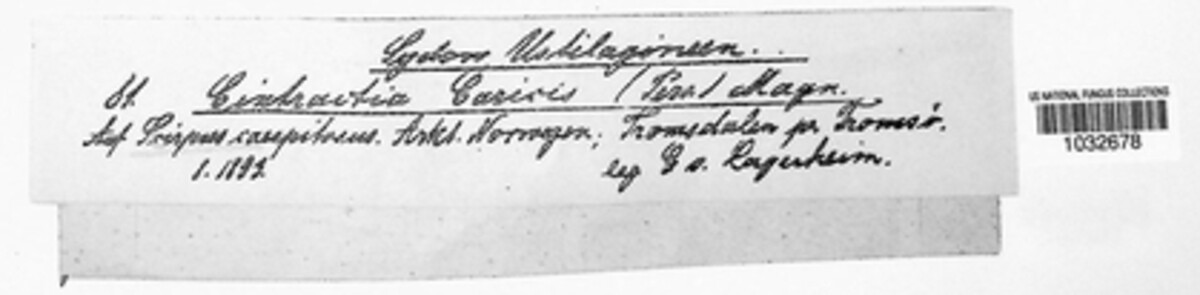 Sydow Ustilagineen.
81. Cintractia Caricis (Pers.) Magn.
Auf Scirpus caespitosus. Arkt. Norwegen; Tromsdalen pr. Tromsö.
1893.
leg G v. Lagerheim.
US NATIONAL FUNGUS COLLECTIONS
1032678